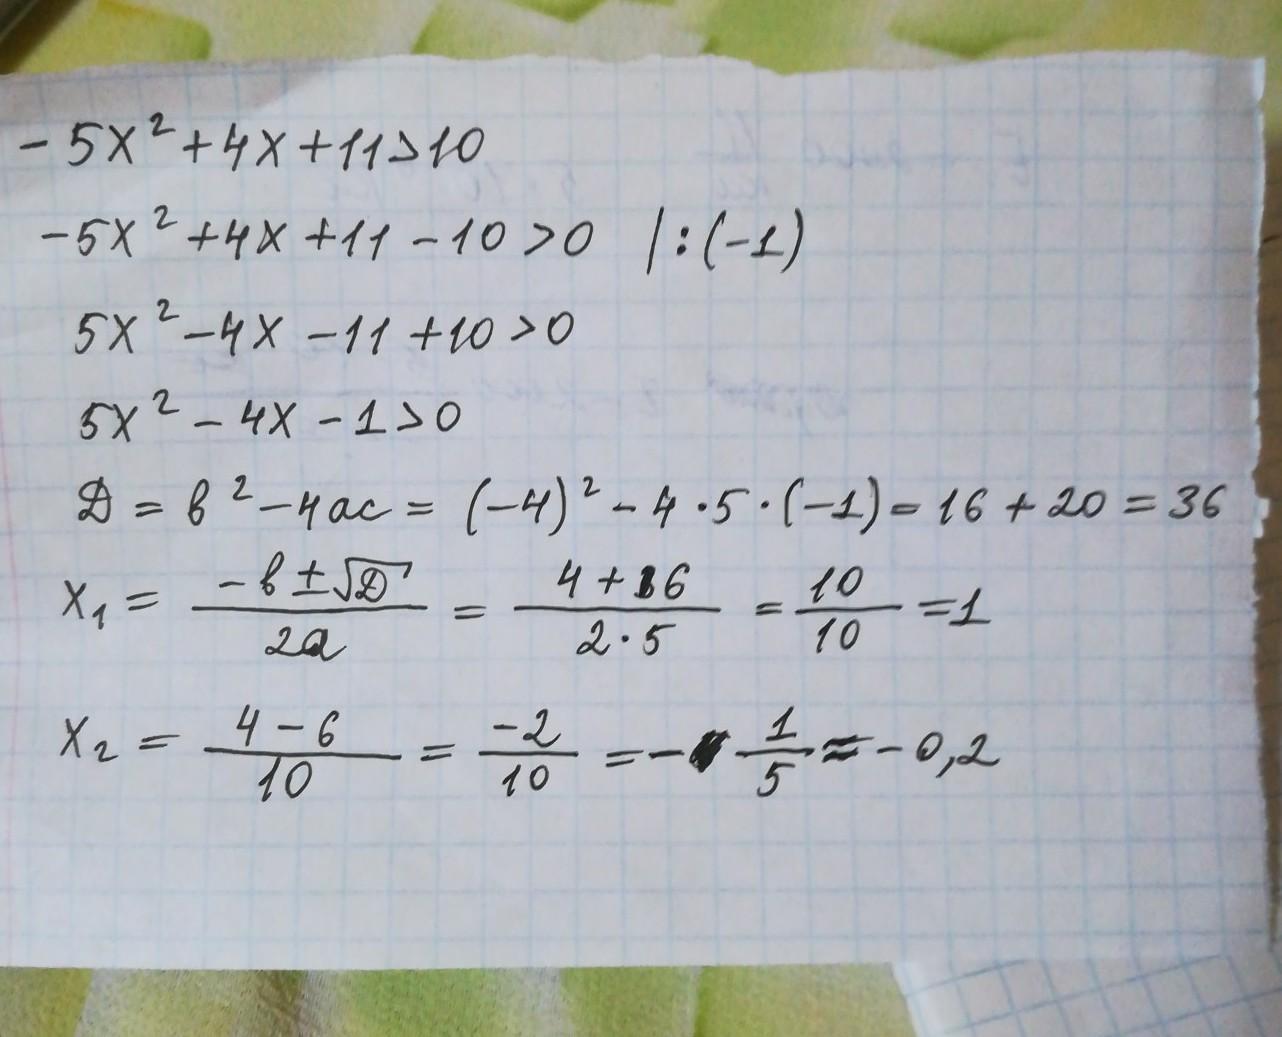 -5x² + 4x + 11 > 10
-5x² + 4x + 11 - 10 > 0 | : (-1)
5x² - 4x - 11 + 10 > 0
5x² - 4x - 1 > 0
D = b² - 4ac = (-4)² - 4 · 5 · (-1) = 16 + 20 = 36
x₁ = (-b ± √D) / 2a = (4 + 6) / (2 · 5) = 10/10 = 1
x₂ = (4 - 6) / 10 = -2/10 = - 1/5 ≈ -0,2